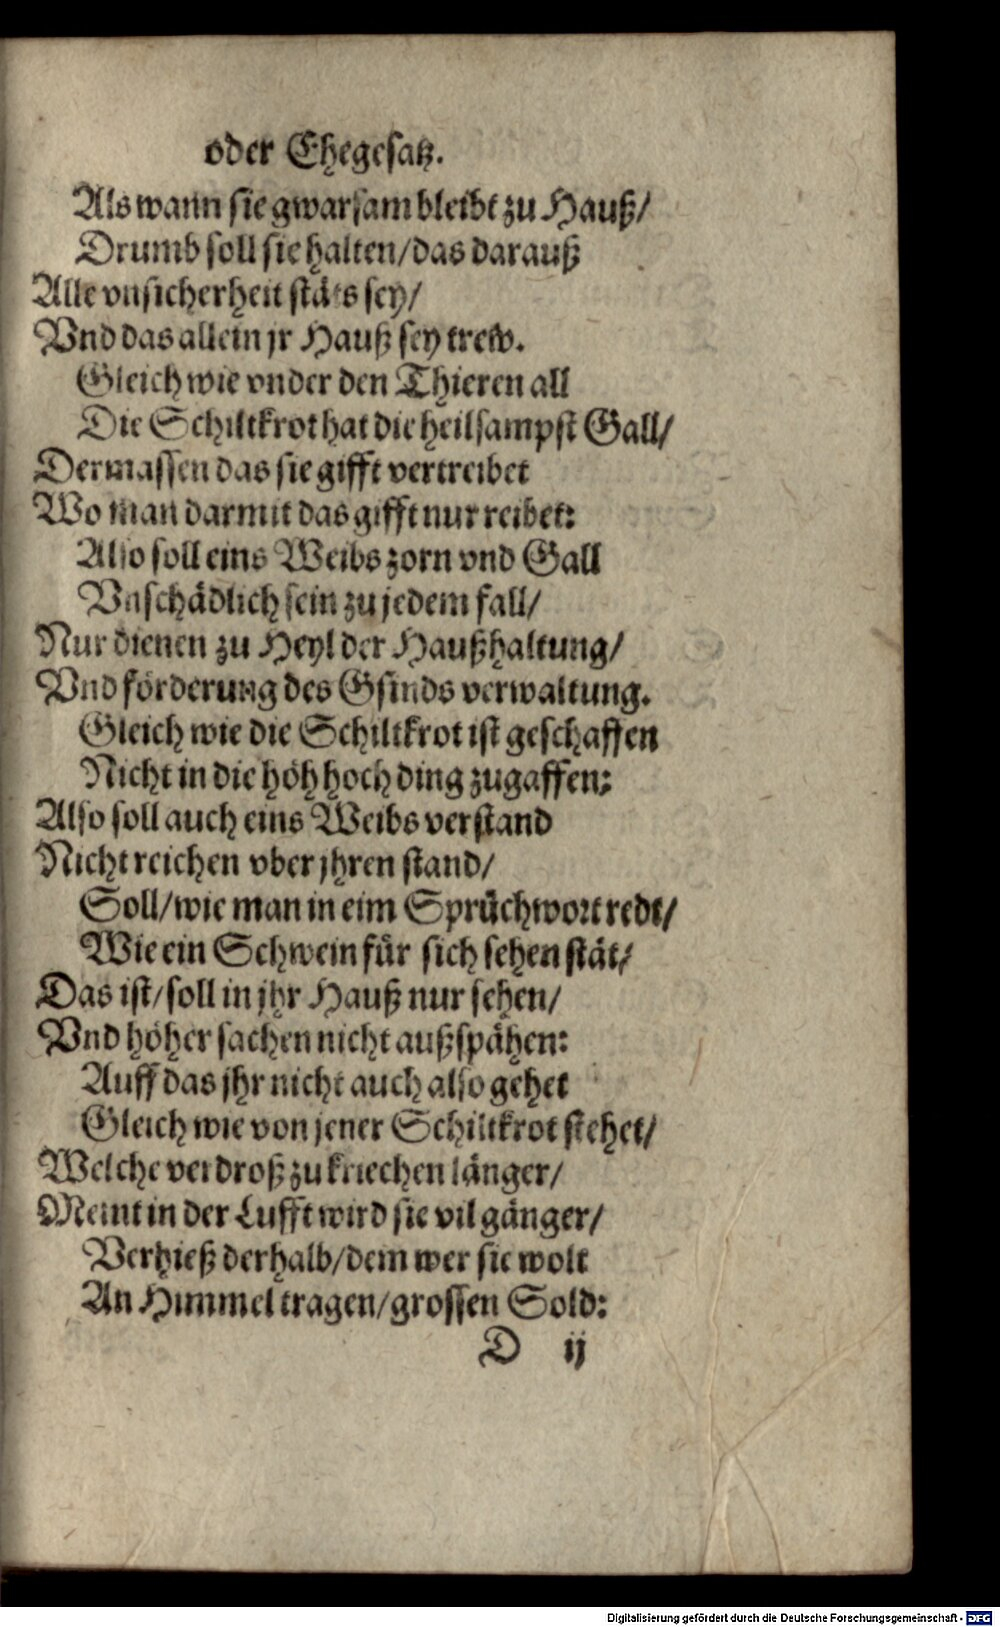 oder Ehegesatz.
Als wann sie gwarsam bleibt zu Hauß/
Drumb soll sie halten/das darauß
Alle vnsicherheit stäts sey/
Vnd das allein jr Hauß sey trew.
Gleich wie vnder den Thieren all
Die Schiltkrot hat die heilsampst Gall/
Dermassen das sie gifft vertreibet
Wo man darmit das gifft nur reibet:
Also soll eins Weibs zorn vnd Gall
Vnschädlich sein zu jedem fall/
Nur dienen zu Heyl der Haußhaltung/
Vnd förderung des Gsinds verwaltung.
Gleich wie die Schiltkrot ist geschaffen
Nicht in die höh hoch ding zugaffen:
Also soll auch eins Weibs verstand
Nicht reichen vber jhren stand/
Soll/wie man in eim Sprüchwort redt/
Wie ein Schwein für sich sehen stät/
Das ist/soll in jhr Hauß nur sehen/
Vnd höher sachen nicht außspähen:
Auff das jhr nicht auch also gehet
Gleich wie von jener Schiltkrot stehet/
Welche verdroß zu kriechen länger/
Meint in der Lufft wird sie vil gänger/
Verhieß derhalb/dem wer sie wolt
An Himmel tragen/grossen Sold:
D ij
Digitalisierung gefördert durch die Deutsche Forschungsgemeinschaft - DFG